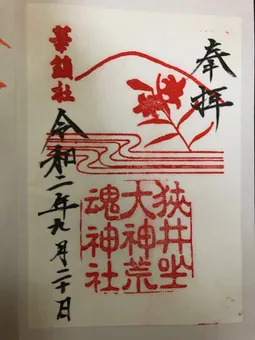 奉拝
狭井坐
大神荒
魂神社
華鎮社
令和二年九月二十日